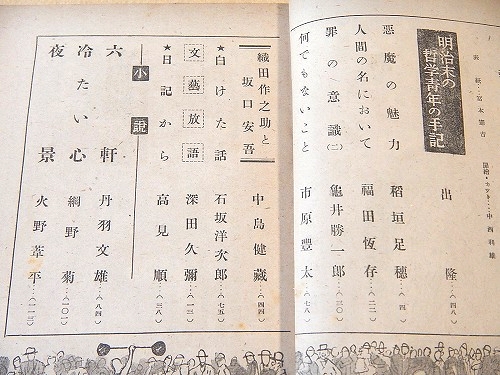 表紙・宮本憲吉
扉絵・カット・中西利雄
明治末の哲学青年の手記 出隆…(四八)
悪魔の魅力 稲垣足穂…(四)
人間の名において 福田恆存…(二二)
罪の意識(二) 龜井勝一郎…(三〇)
何でもないこと 市原豊太…(七八)
織田作之助と坂口安吾 中島健藏…(四四)
★白けた話 石坂洋次郎…(七五)
文藝放語 深田久彌…(一三)
★日記から 高見順…(三八)
小説
六軒 丹羽文雄…(八四)
冷たい心 網野菊…(一〇一)
夜景 火野葦平…(一一三)